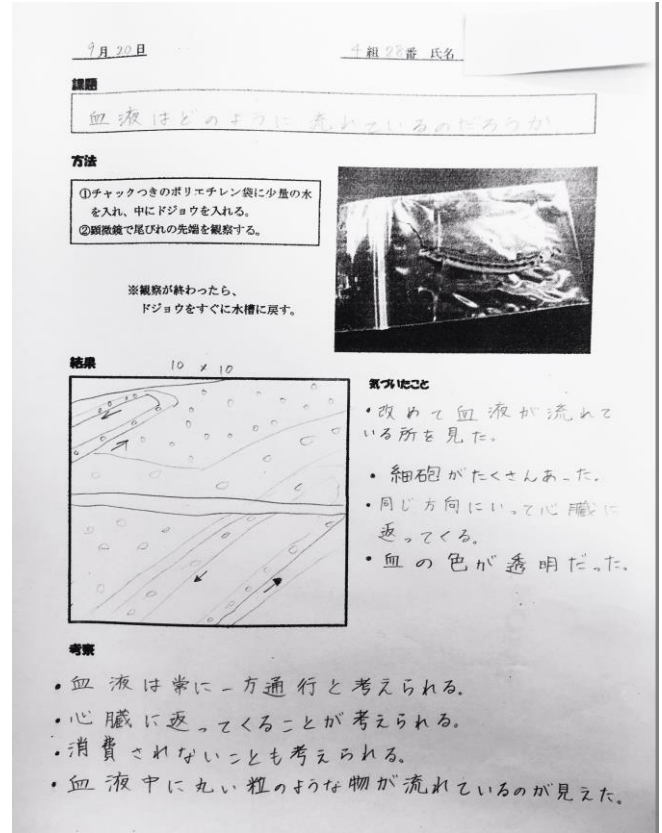 9月20日
4組28番 氏名
課題
血液はどのように流れているのだろうか
方法
①チャックつきのポリエチレン袋に少量の水
を入れ、中にドジョウを入れる。
②顕微鏡で尾びれの先端を観察する。
※観察が終わったら、
ドジョウをすぐに水槽に戻す。
結果
10 × 10
気づいたこと
・改めて血液が流れて
いる所を見た。
・細砲がたくさんあった。
・同じ方向にいって心臓に
返ってくる。
・血の色が透明だった。
考察
・血液は常に一方通行と考えられる。
・心臓に返ってくることが考えられる。
・消費されないことも考えられる。
・血液中に丸い粒のような物が流れているのが見えた。